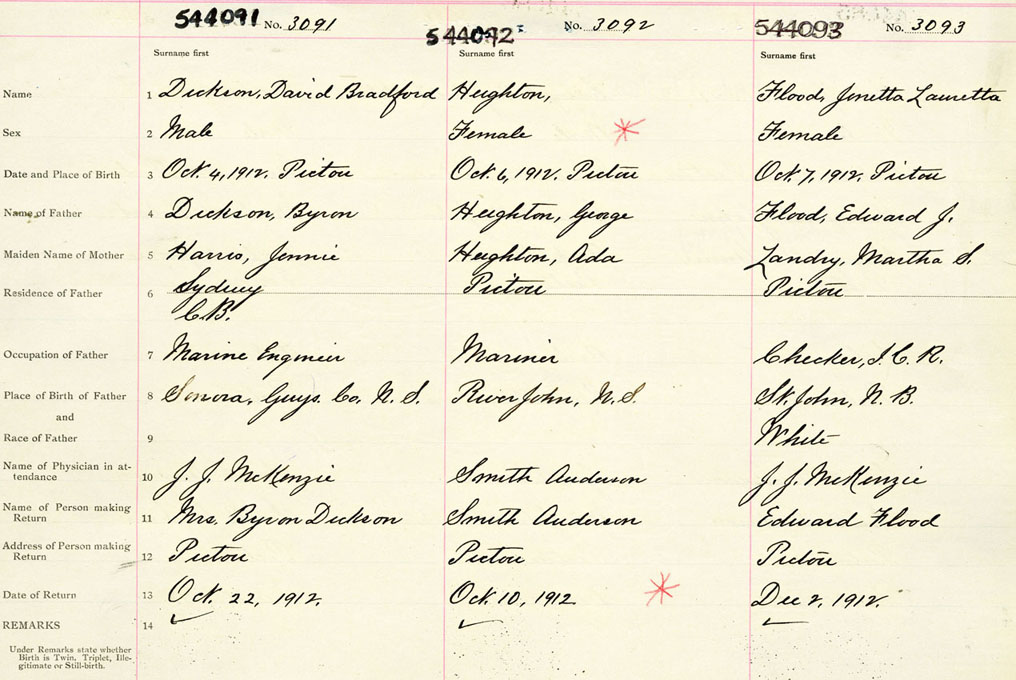 544091 No. 3091 544092 No. 3092 544093 No. 3093
Surname first Surname first Surname first
Name 1 Dickson, David Bradford Heighton, Flood, Jonetta Lauretta
Sex 2 Male Female Female
Date and Place of Birth 3 Oct. 4, 1912. Pictou Oct. 6, 1912. Pictou Oct. 7, 1912. Pictou
Name of Father 4 Dickson, Byron Heighton, George Flood, Edward J.
Maiden Name of Mother 5 Harris, Jennie Heighton, Ada Landry, Martha S.
Residence of Father 6 Sydney Pictou Pictou
C.B.
Occupation of Father 7 Marine Engineer Mariner Checker, I. C. R.
Place of Birth of Father 8 Sonora, Guys. Co. N. S. River John, N.S. St. John, N. B.
and
Race of Father 9 White
Name of Physician in at-
tendance 10 J. J. McKenzie Smith Anderson J. J. McKenzie
Name of Person making
Return 11 Mrs. Byron Dickson Smith Anderson Edward Flood
Address of Person making
Return 12 Pictou Pictou Pictou
Date of Return 13 Oct. 22, 1912. Oct. 10, 1912 Dec 2, 1912.
REMARKS 14
Under Remarks state whether
Birth is Twin, Triplet, Ille-
gitimate or Still-birth.